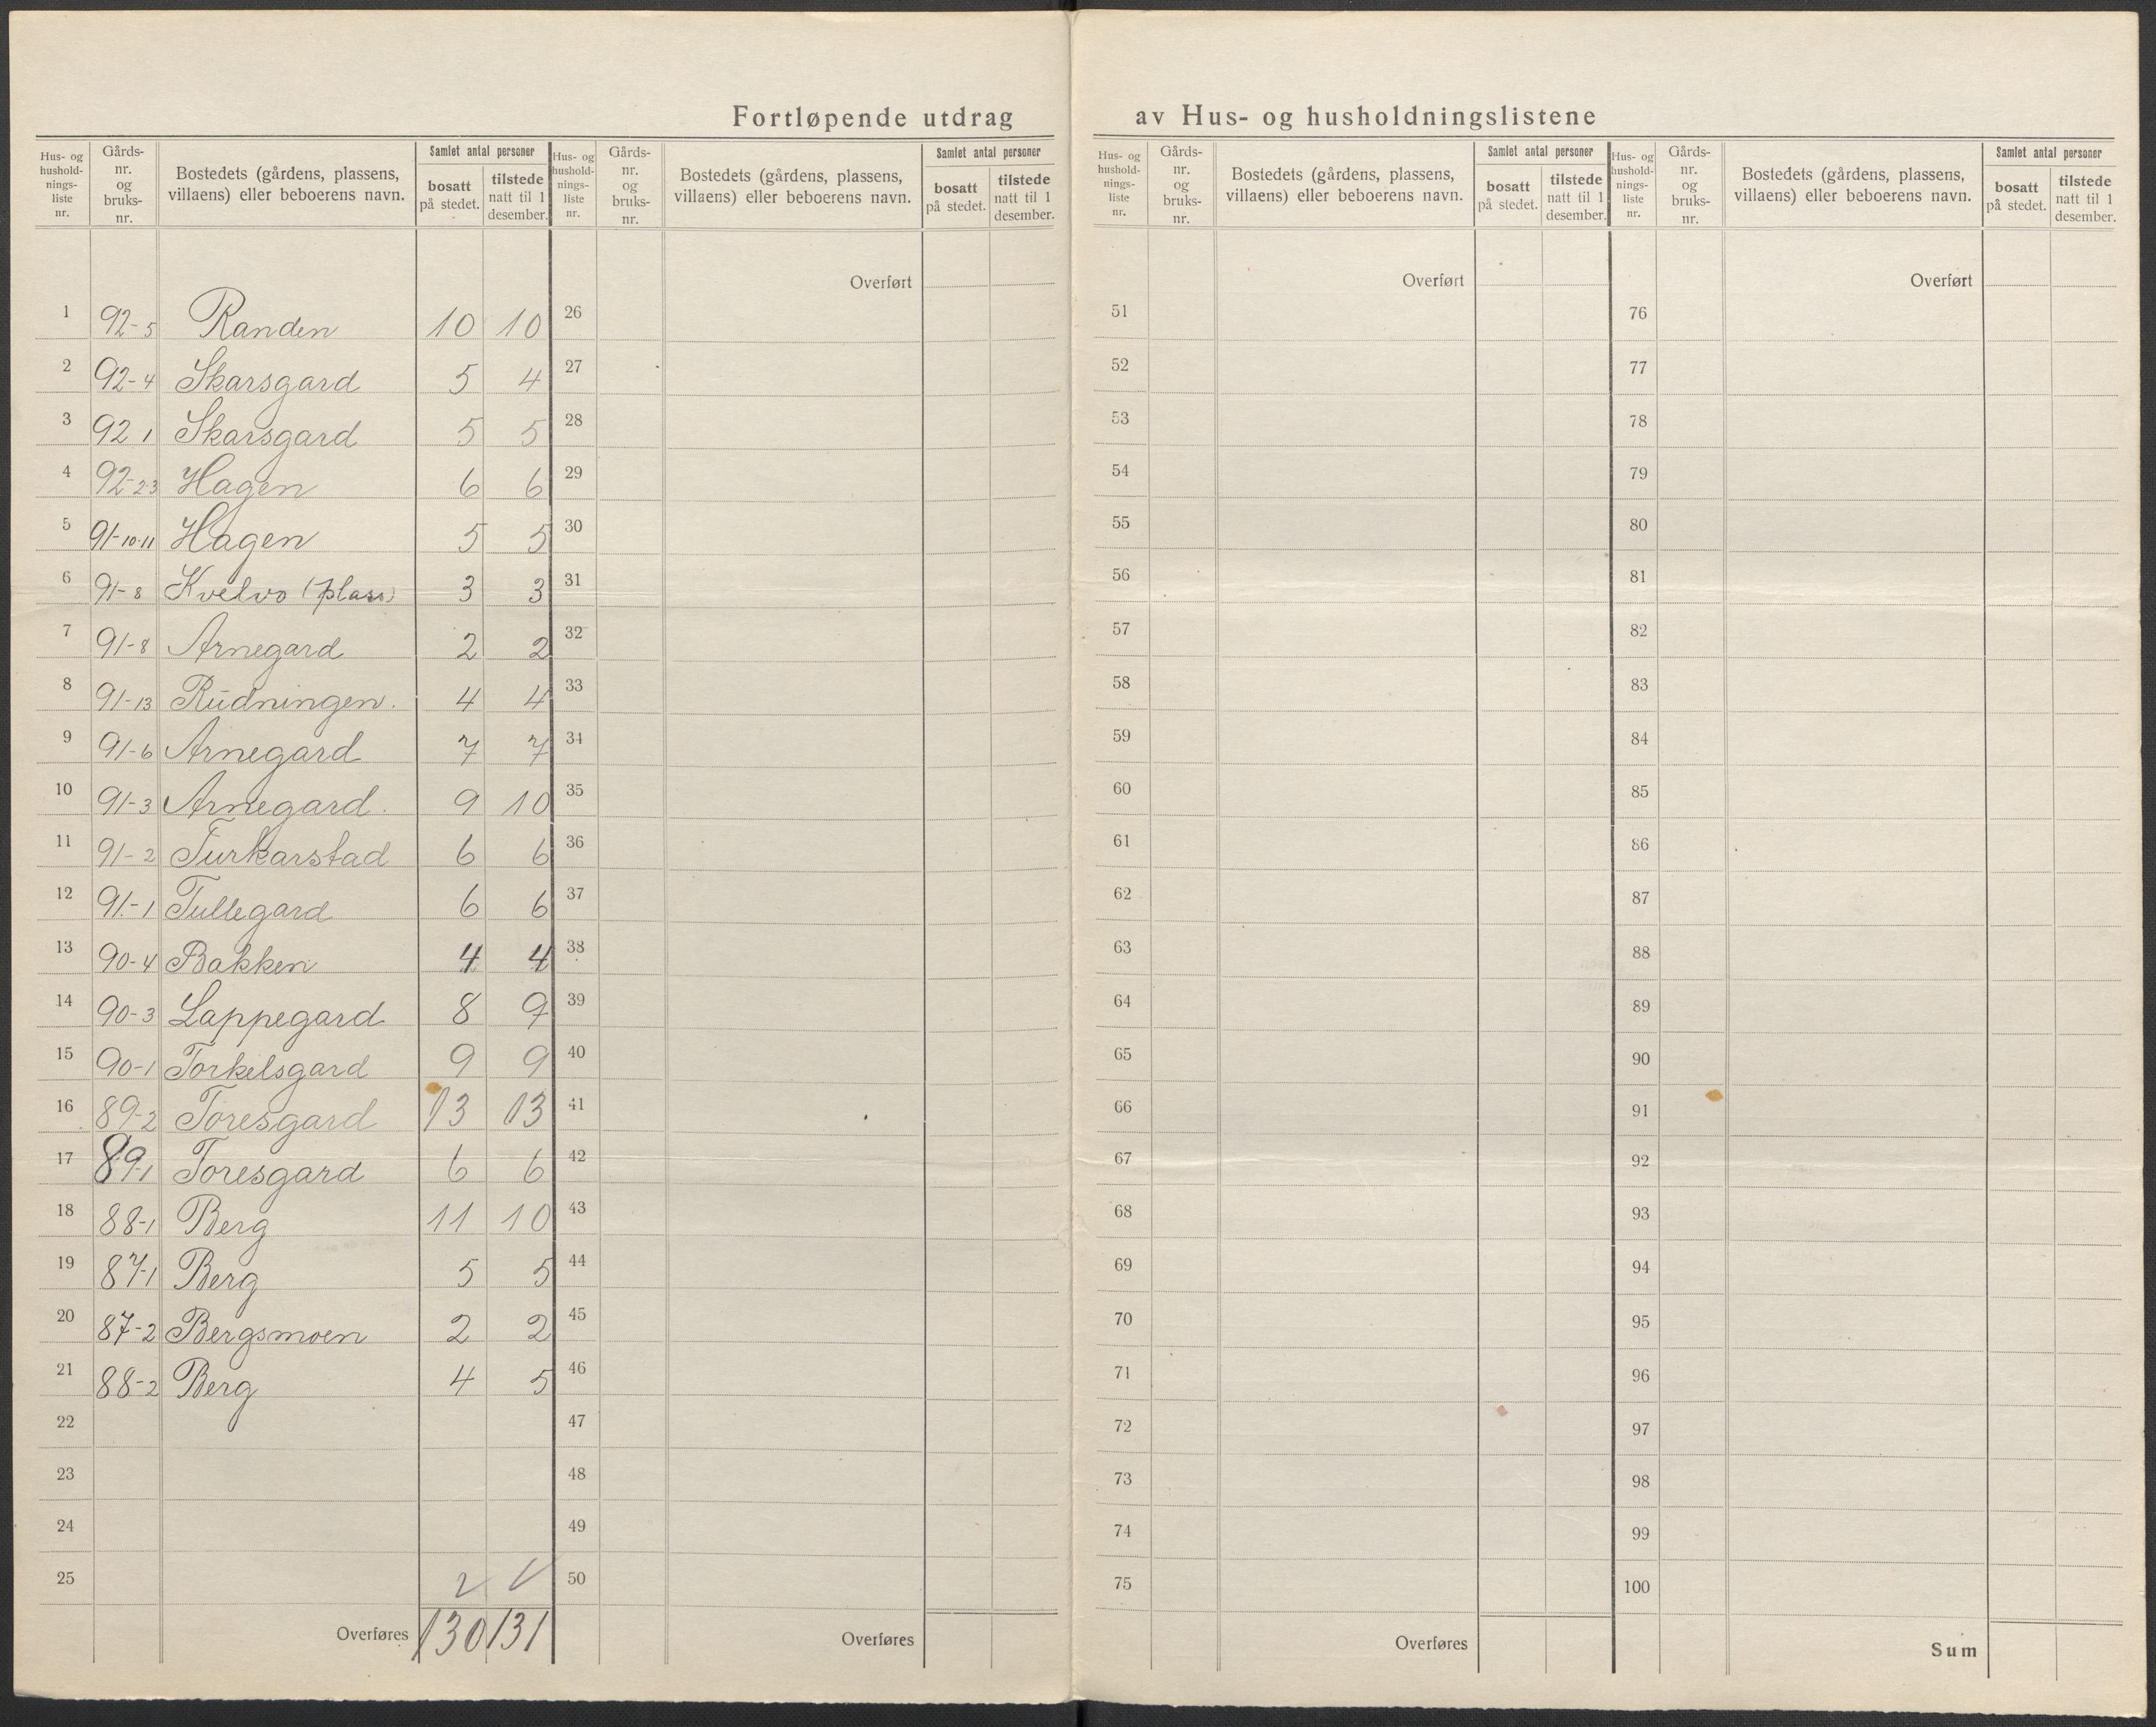 Fortløpende utdrag av Hus- og husholdningslistene
Hus- og husholdnings-liste nr. | Gårds-nr. og bruks-nr. | Bostedets (gårdens, plassens, villaens) eller beboerens navn. | Samlet antal personer bosatt på stedet. | tilstede natt til 1 desember.
1 92-5 Randen 10 10
2 92-4 Skarsgard 5 4
3 92 1 Skarsgard 5 5
4 92-23 Hagen 6 6
5 91-10-11 Hagen 5 5
6 91-8 Kvelvo (plass) 3 3
7 91-8 Arnegard 2 2
8 91-13 Rudningen. 4 4
9 91-6 Arnegard 7 7
10 91-3 Arnegard. 9 10
11 91-2 Turkarstad 6 6
12 91-1 Tullegard 6 6
13 90-4 Bakken 4 4
14 90-3 Lappegard 8 9
15 90-1 Torkelsgard 9 9
16 89-2 Toresgard 13 13
17 89-1 Toresgard 6 6
18 88-1 Berg 11 10
19 87-1 Berg 5 5
20 87-2 Bergsmoen 2 2
21 88-2 Berg 4 5
22
23
24
25
Overføres 130 131
Hus- og husholdnings-liste nr. | Gårds-nr. og bruks-nr. | Bostedets (gårdens, plassens, villaens) eller beboerens navn. | Samlet antal personer bosatt på stedet. | tilstede natt til 1 desember.
Overført
26
27
28
29
30
31
32
33
34
35
36
37
38
39
40
41
42
43
44
45
46
47
48
49
50
Overføres
Hus- og husholdnings-liste nr. | Gårds-nr. og bruks-nr. | Bostedets (gårdens, plassens, villaens) eller beboerens navn. | Samlet antal personer bosatt på stedet. | tilstede natt til 1 desember.
Overført
51
52
53
54
55
56
57
58
59
60
61
62
63
64
65
66
67
68
69
70
71
72
73
74
75
Overføres
Hus- og husholdnings-liste nr. | Gårds-nr. og bruks-nr. | Bostedets (gårdens, plassens, villaens) eller beboerens navn. | Samlet antal personer bosatt på stedet. | tilstede natt til 1 desember.
Overført
76
77
78
79
80
81
82
83
84
85
86
87
88
89
90
91
92
93
94
95
96
97
98
99
100
Sum